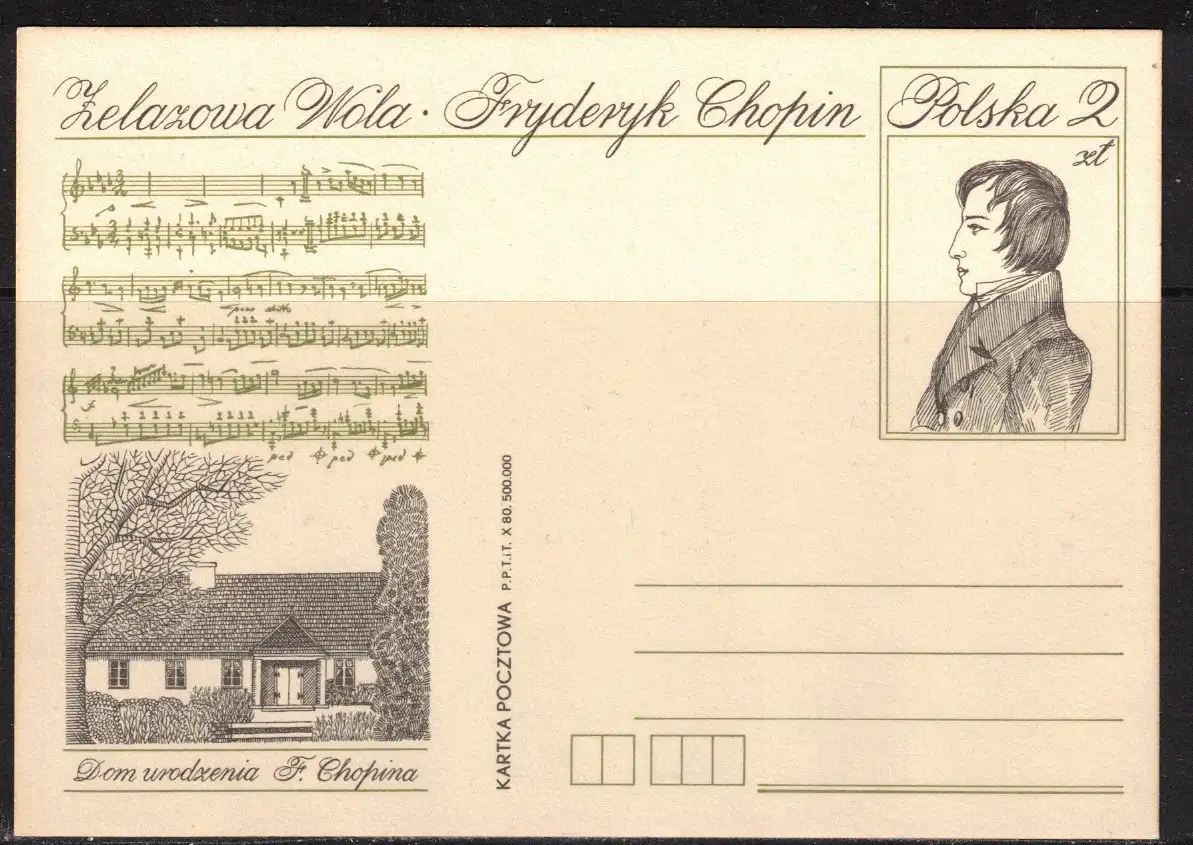 Żelazowa Wola · Fryderyk Chopin
Polska 2
zł
ped ped ped
Dom urodzenia F. Chopina
KARTKA POCZTOWA P.P.T.iT. X 80. 500.000